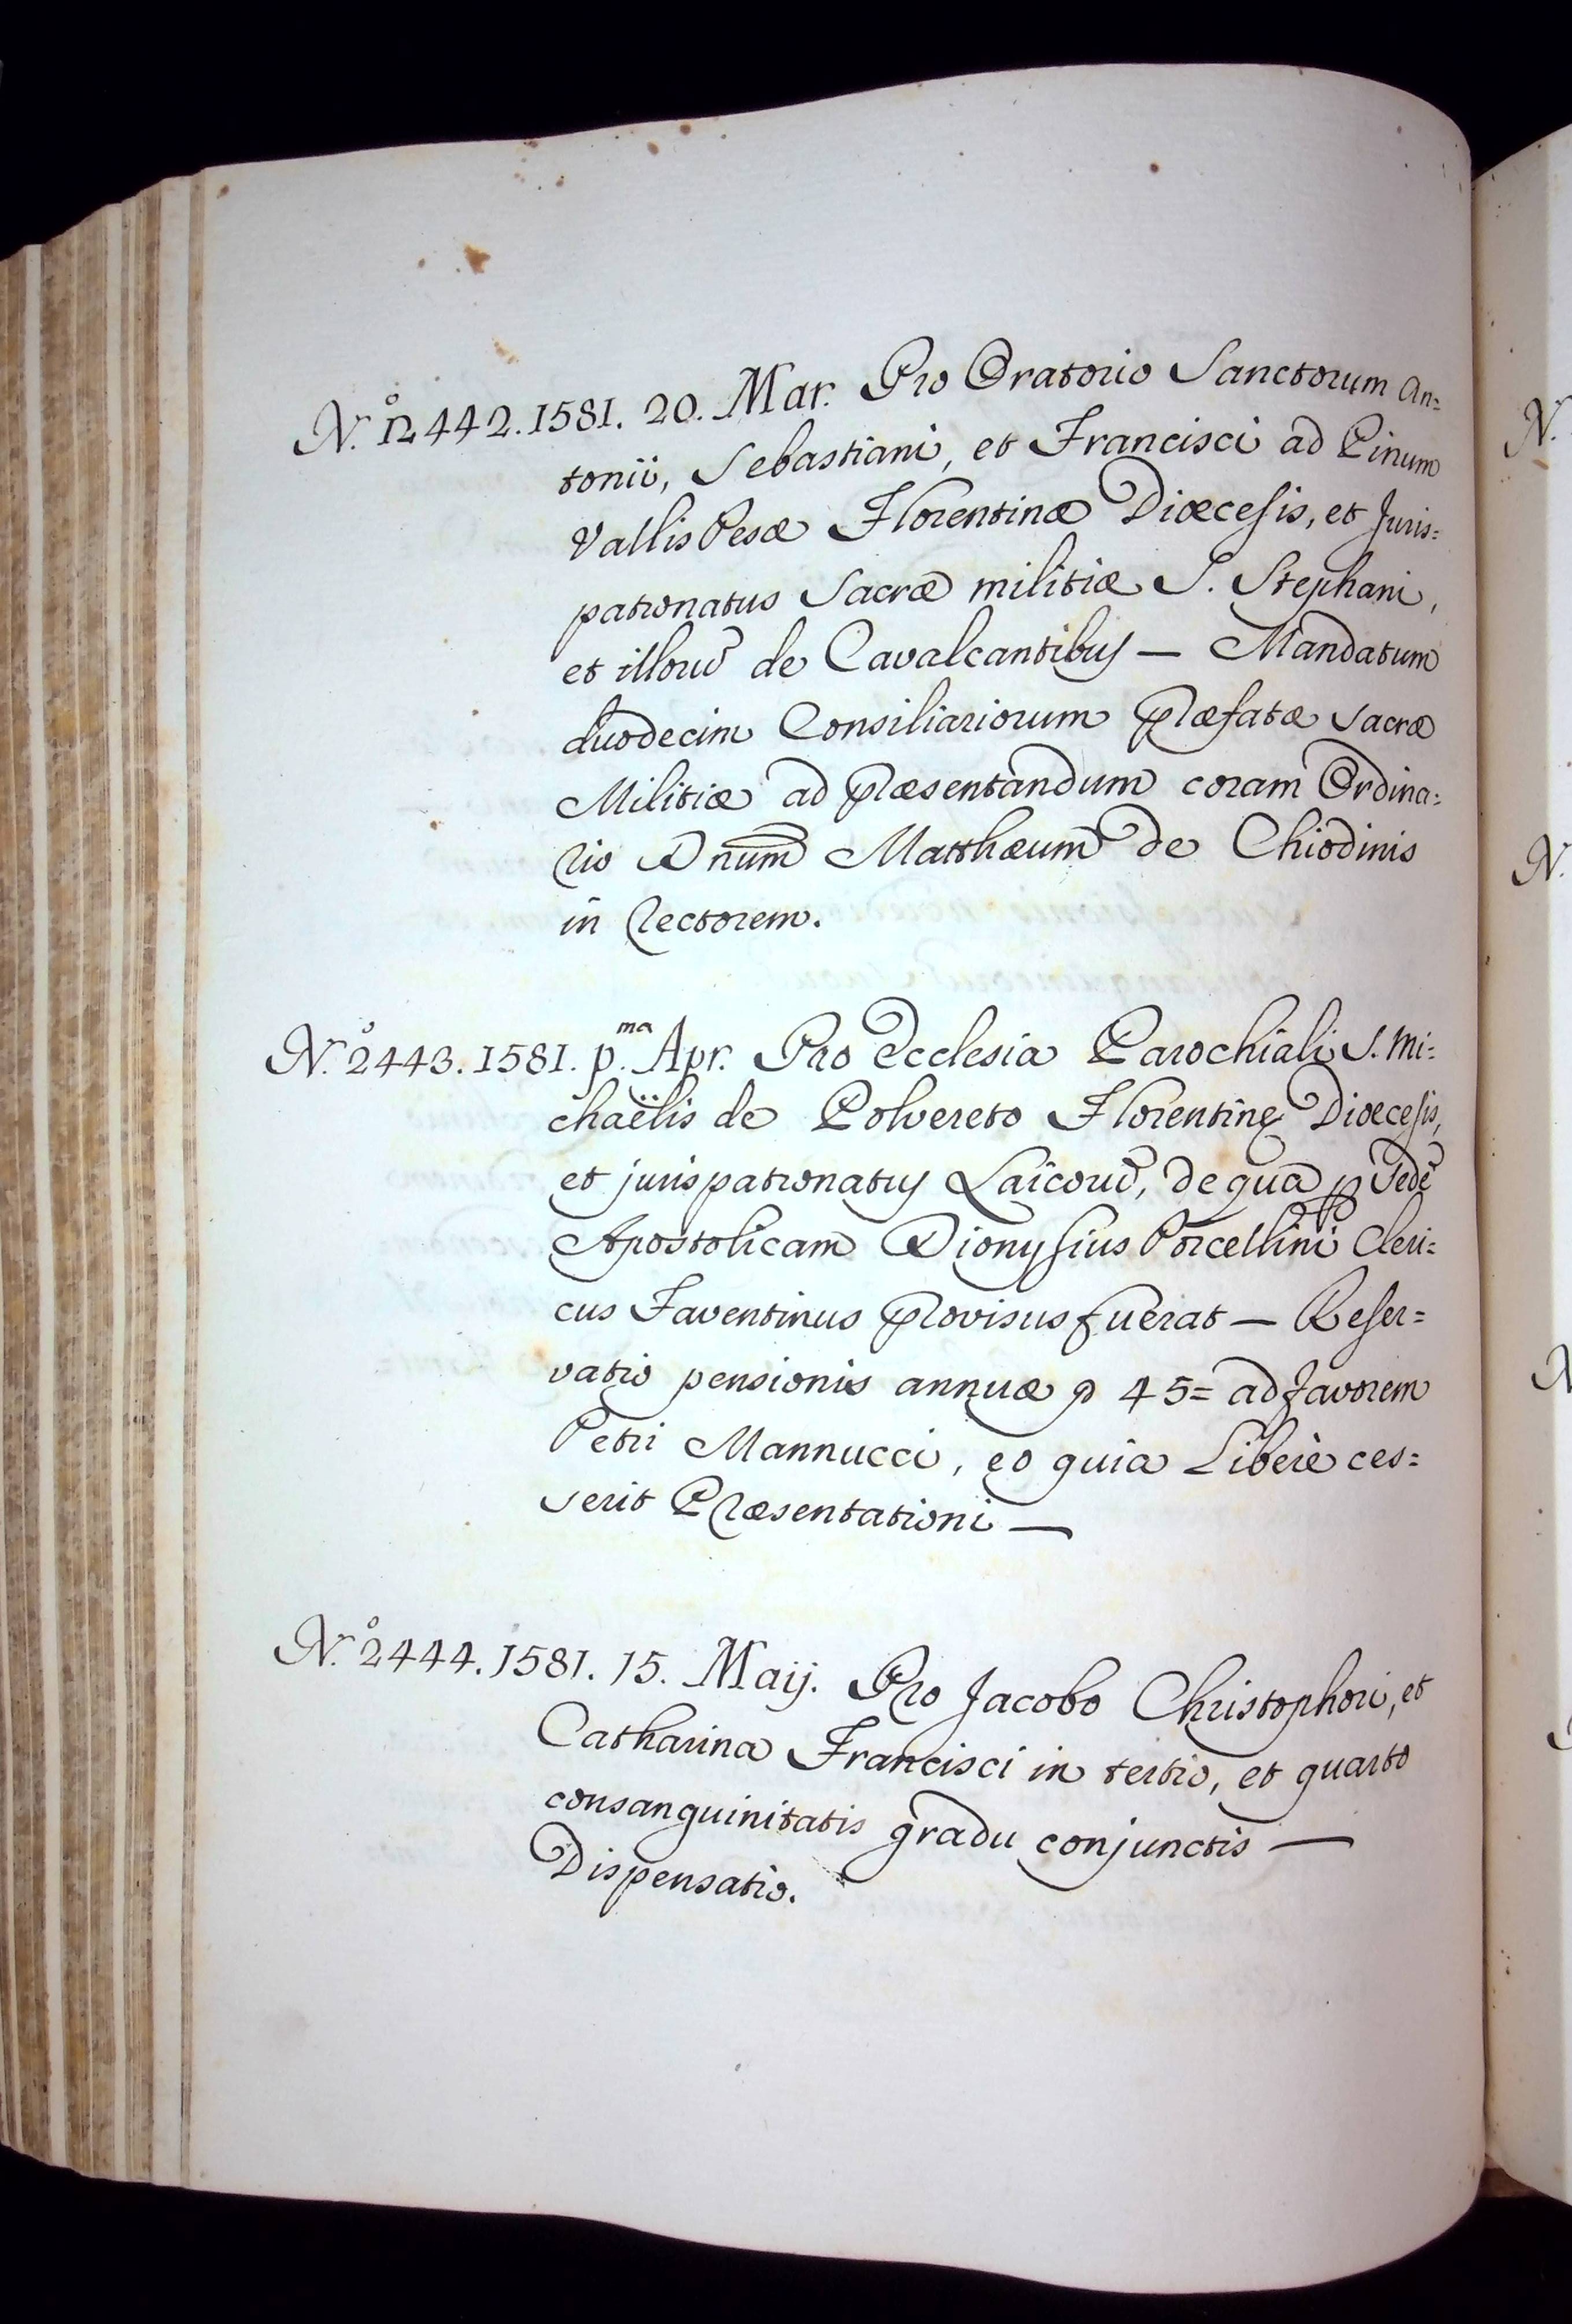 N.º 2442. 1581. 20. Mar. Pro Oratorio Sanctorum An=
tonii, Sebastiani, et Francisci ad Pinum
Vallis Pesæ Florentinæ Diœcesis, et Juris=
patronatus Sacræ militiæ S. Stephani,
et illorũ de Cavalcantibus — Mandatum
duodecim Consiliariorum præfatæ sacræ
Militiæ ad præsentandum coram Ordina=
rio Dnum̃ Matthæum de Chiodinis
in rectorem.
N.º 2443. 1581. p.ᵐᵃ Apr. Pro Ecclesia Parochiali S. Mi=
chaëlis de Polvereto Florentinę Diœcesis,
et juris patronatus Laicorũ, de qua p Sedẽ
Apostolicam Dionysius Porcellini Cleri=
cus Faventinus provisus fuerat — Reser=
vatio pensionis annuæ 45= ad favorem
Petri Mannucci, eo quia Liberè ces=
serit Præsentationi —
N.º 2444. 1581. 15. Maij. Pro Jacobo Christophori, et
Catharina Francisci in tertio, et quarto
consanguinitatis gradu conjunctis —
Dispensatio.
N.
N.
N